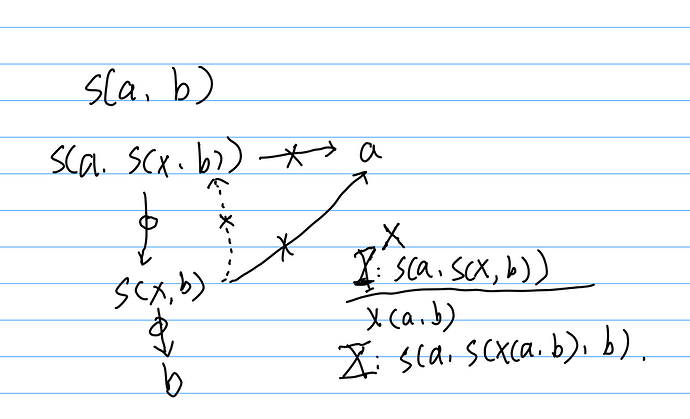 s(a, b)
s(a. s(x, b)) x a
x
s(x, b)
b
x
X
X: s(a, s(x, b))
x(a, b)
X: s(a, s(x(a, b), b).